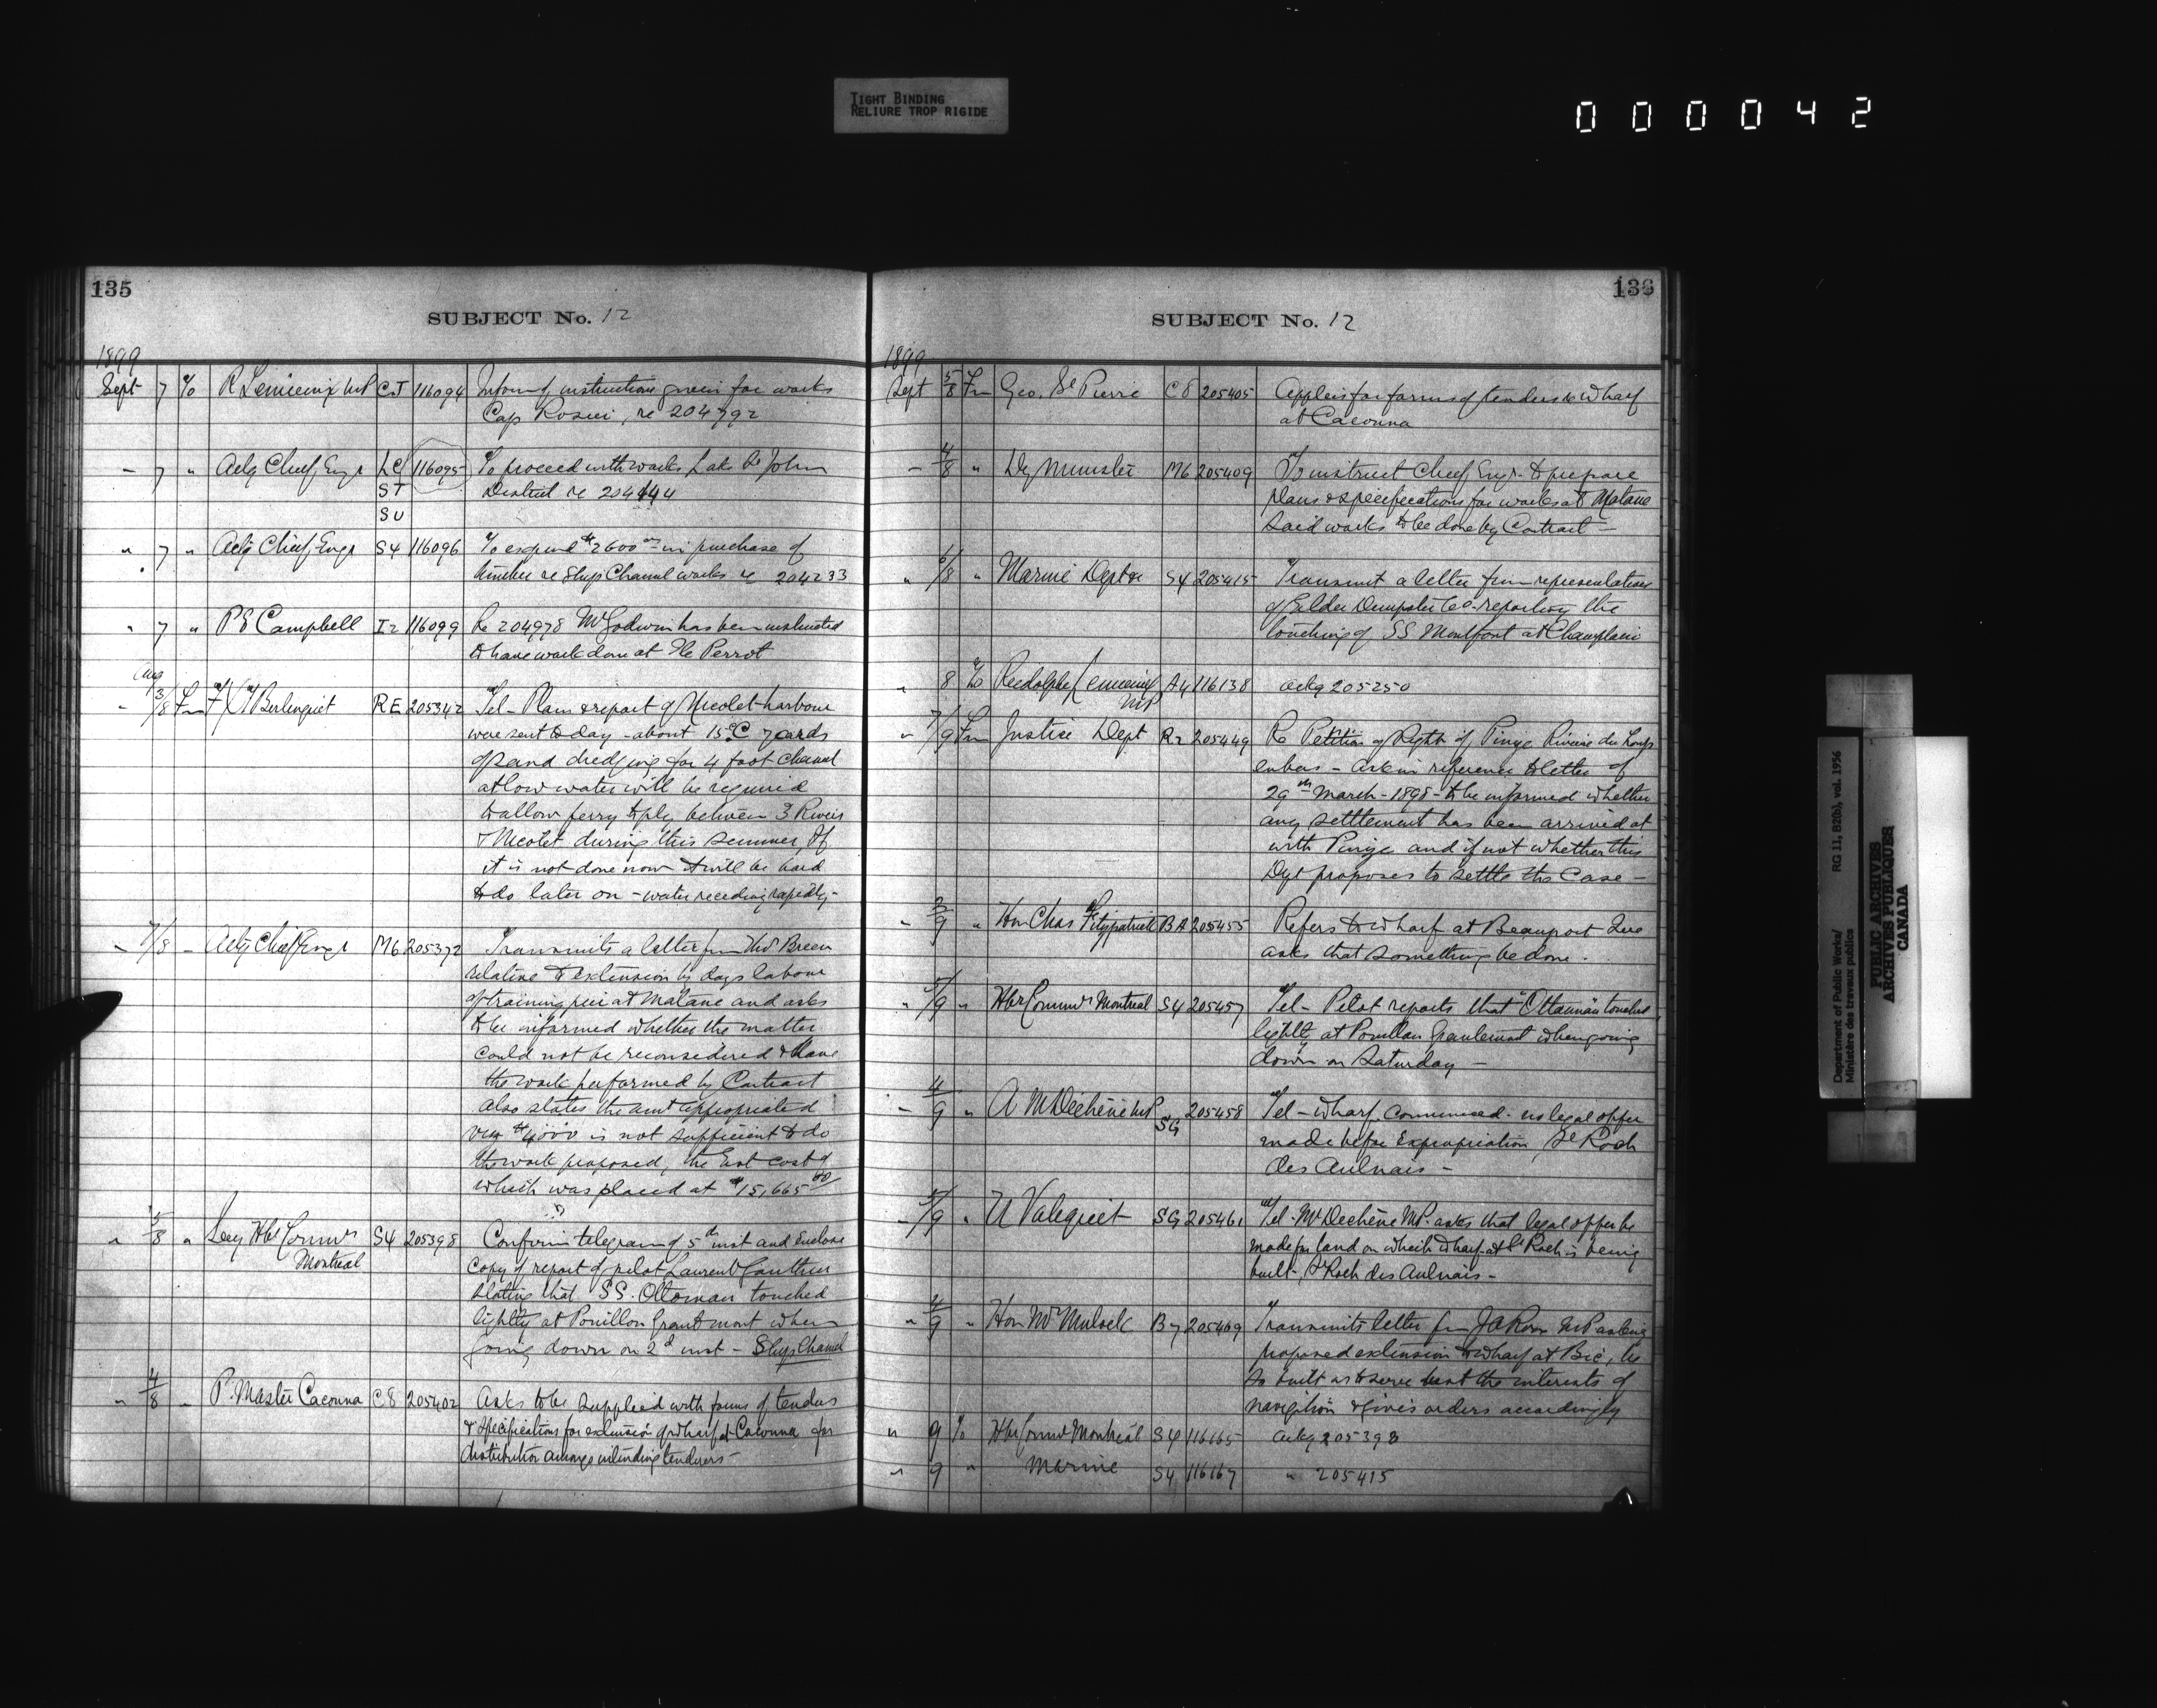 TIGHT BINDING
RELIURE TROP RIGIDE
000042
135
SUBJECT No. 12
1899
Sept 7 To R Lemieux MP CJ 116094 Inform of instructions given for works
Cap Rosier, re 204792
" 7 " Actg Chief Engr LC 116095 To proceed with works Lake St John
ST District re 204144
SU
" 7 " Actg Chief Engr S4 116096 To expend $2600 in purchase of
timber re Ship Channel works re 204233
" 7 " P E Campbell I2 116099 Re 204978 Mr Godwin has been instructed
to have work done at Ile Perrot
Aug
" 3/8 Fm F X T Berlinguet RE 205342 Tel - Plans & report of Nicolet harbour
were sent to day - about 15 C yards
of sand dredging for 4 foot channel
at low water will be required
to allow ferry to ply between 3 Rivers
& Nicolet during this summer, If
it is not done now it will be hard
to do later on - water receding rapidly -
" 7/8 " Actg Chief Engr M6 205372 Transmits a letter from Thos Breen
relative to extension by days labour
of training pier at Matane and asks
to be informed whether the matter
could not be reconsidered & have
the work performed by Contract
also states the amt appropriated
$4000 is not sufficient to do
the work proposed, the Est cost of
which was placed at $15,665
" 5/8 " Secy Hbr Commrs S4 205398 Confirm telegram of 5th inst and enclose
Montreal copy of report of pilot Laurent Gauthier
stating that SS. Ottoman touched
lightly at Pouillon Grantmont when
going down on 2d inst - Ship Channel
" 4/8 " P. Master Cacouna C8 205402 Asks to be supplied with forms of tenders
& specifications for extension of wharf at Cacouna for
distribution among intending tenderers -
136
SUBJECT No. 12
1899
Sept 5/8 Fm Geo. St Pierre C8 205405 Applies for forms of tenders re wharf
at Cacouna
" 4/8 " Dy Minister M6 205409 To instruct Chief Engr. to prepare
plans & specifications for works at Matane
said works to be done by Contract -
" 6/8 " Marine Dept S4 205415 Transmit a letter from representatives
of Elder Dempster Co. reporting the
touching of SS Montfort at Champlain
" 8 To Rodolphe Lemieux A4 116138 ackg 205250
MP
" 7/9 Fm Justice Dept R2 205449 Re Petition of Right of Pinze Riviere du Loup
enbas - ask in reference to letter of
29th March - 1898 - to be informed whether
any settlement has been arrived at
with Pinze and if not whether this
Dept proposes to settle the Case -
" 2/9 " Hon Chas Fitzpatrick BA 205455 Refers to wharf at Beauport Que
asks that something be done.
" 5/9 " Hbr Commrs Montreal S4 205457 Tel - Pilot reports that "Ottoman" touched
lightly at Pouillon Grantmont when going
down on Saturday -
" 4/9 " A M Dechêne MP SG 205458 Tel - wharf commenced. no legal offer
made before Expropriation, St Roch
des Aulnais -
" 5/9 " U Valiquet SG 205461 Tel. Mr Dechêne MP. asks that legal offer be
made for land on which wharf at St Roch is being
built, St Roch des Aulnais -
" 4/9 " Hon Mr Mulock B7 205469 Transmits letter fm J A Ross MP asking
proposed extension to wharf at Bic, be
so built as to serve best the interests of
navigation & give orders accordingly
" 9 To Hbr Commrs Montreal S4 116165 ackg 205398
" 9 " Marine S4 116167 " 205415
Department of Public Works/ RG 11, B2(b), vol. 1956
Ministère des travaux publics
PUBLIC ARCHIVES
ARCHIVES PUBLIQUES
CANADA